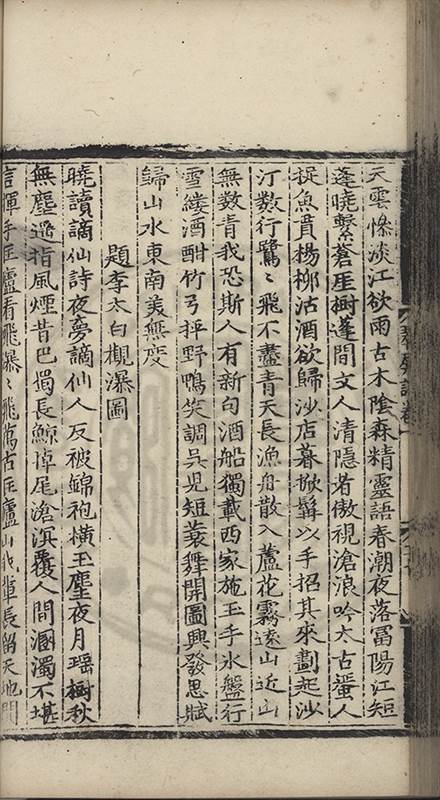 天雲慘淡江欲雨古木陰森精靈語春潮夜落富陽江短
蓬曉繫蒼厓樹蓬間文人清隱者傲視滄浪吟太古蜑人
捉魚貫楊柳沽酒欲歸沙店暮掀髯以手招其來劃起沙
汀数行鷺〻飛不盡青天長漁舟散入蘆花霧遠山近山
無数青我恐斯人有新句酒船獨載西家施玉手氷盤行
雪縷酒酣竹弓抨野鴨笑調吳児短蓑舞開圖興發思賦
歸山水東南美無度
題李太白觀瀑圖
曉讀謫仙詩夜夢謫仙人反被錦袍橫玉麈夜月瑶樹秋
無塵遥指風煙昔巴蜀長鯨掉尾滄溟覆人間溷濁不堪
言揮手匡廬看飛瀑〻飛萬古匡廬山我輩長留天地間